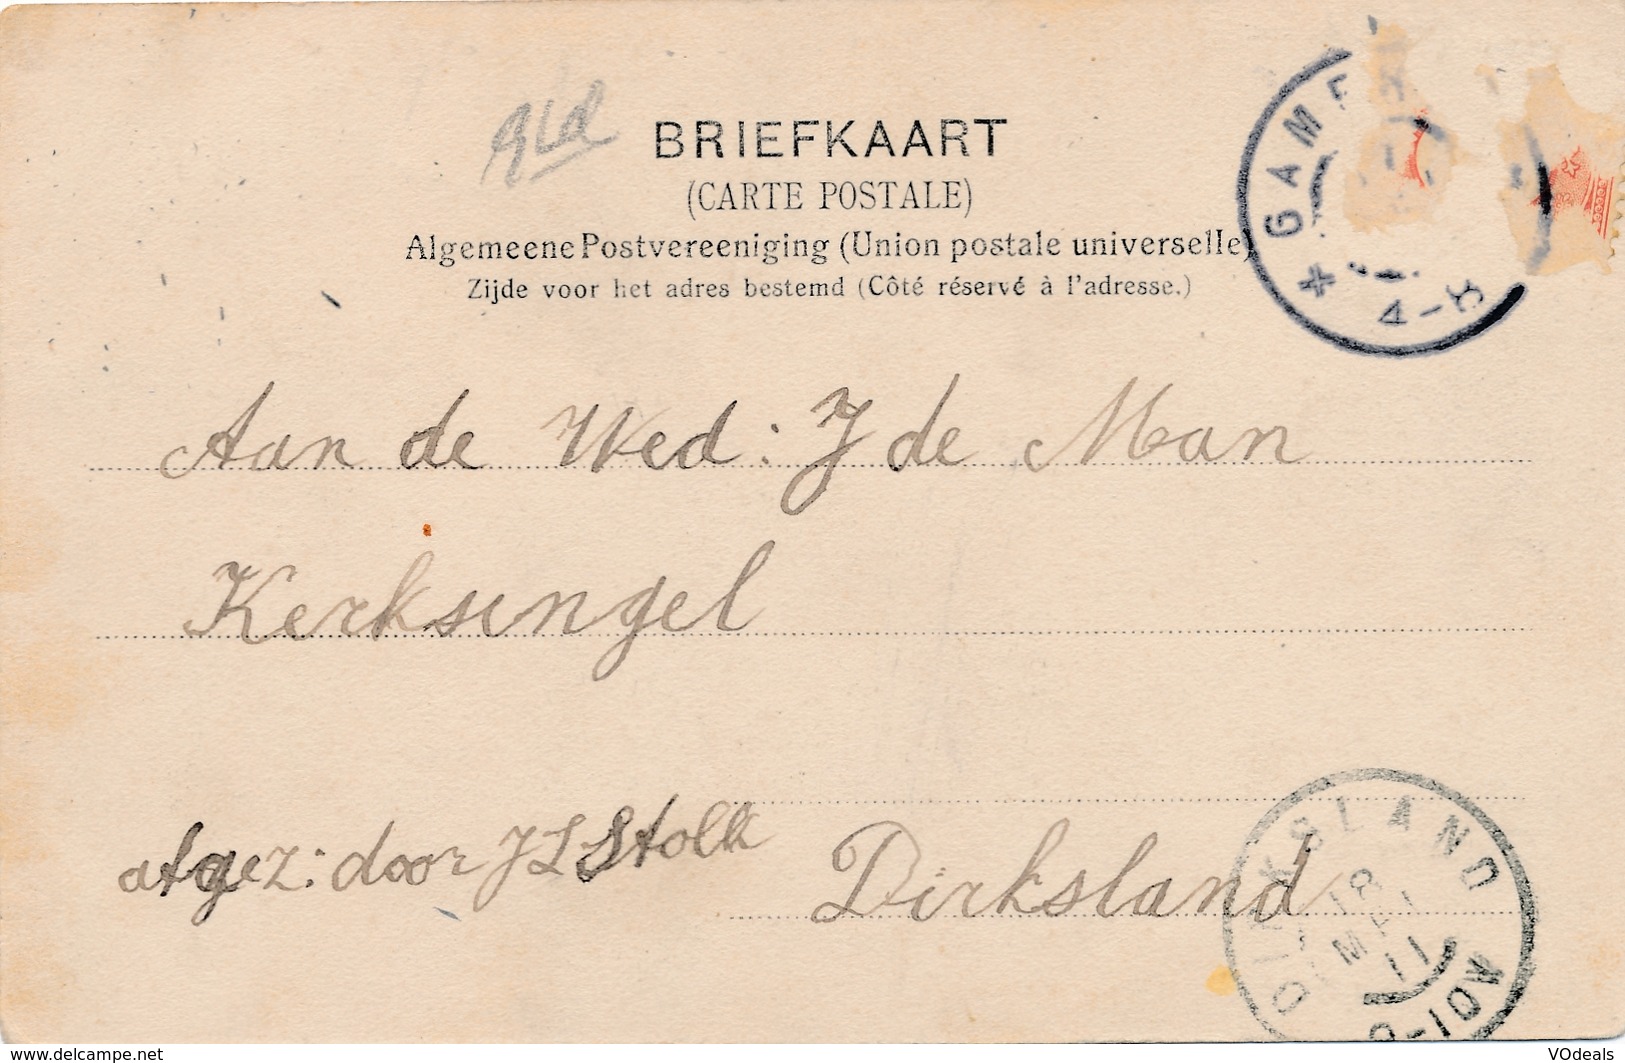 Gld
BRIEFKAART
(CARTE POSTALE)
Algemeene Postvereeniging (Union postale universelle)
Zijde voor het adres bestemd (Côté réservé à l'adresse.)
GAME
Aan de Wed: J de Man
Kerksingel
afgez: door J L Stolk
Dirksland
DIRKSLAND
18
MEI
11
www.delcampe.net
VOdeals